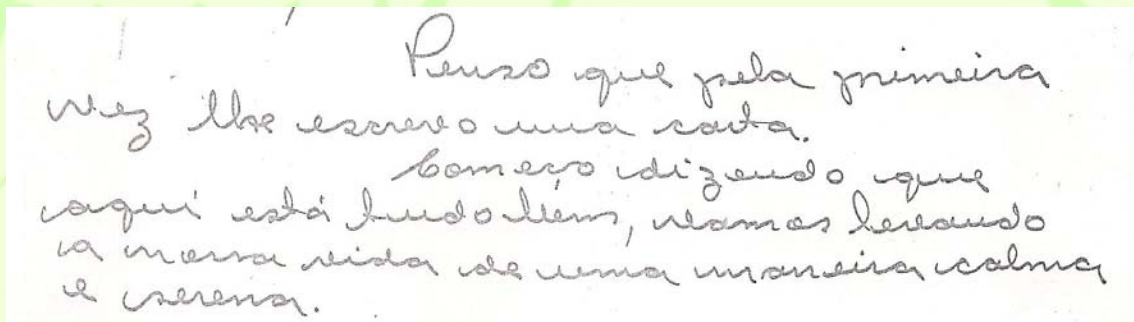 Penso que pela primeira
vez lhe escrevo uma carta.
Começo dizendo que
aqui está tudo bem, vamos levando
a nossa vida de uma maneira calma
e serena.